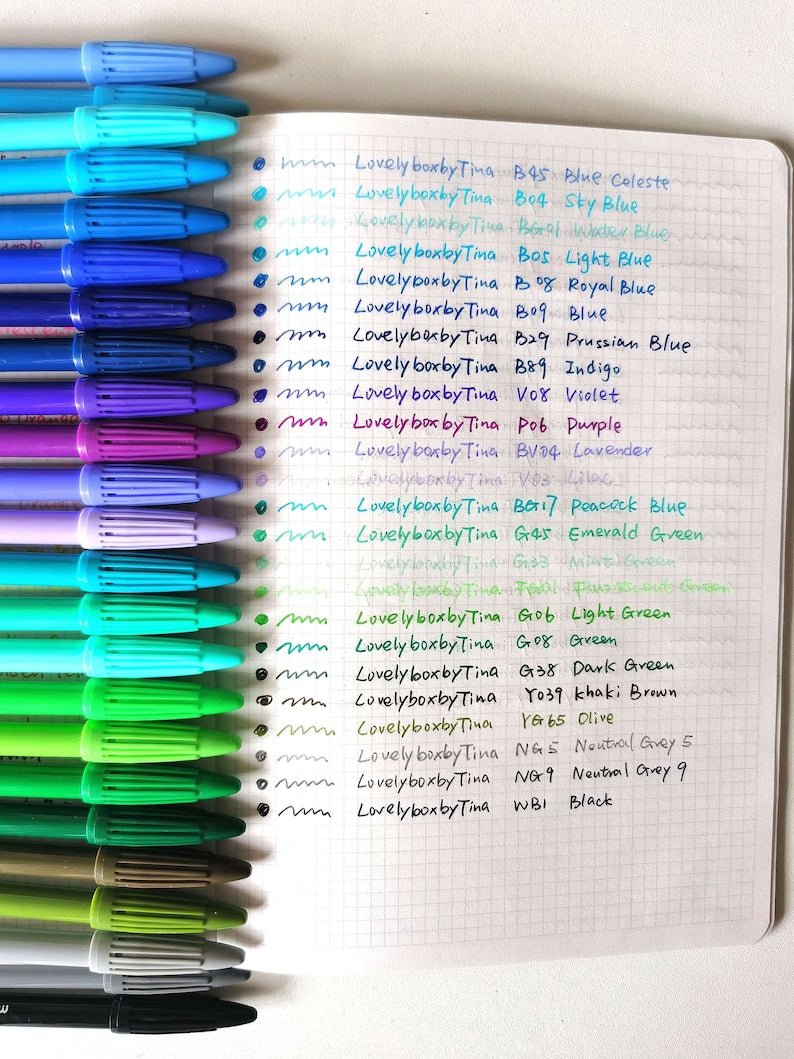 LovelyboxbyTina B45 Blue Celeste
LovelyboxbyTina B04 Sky Blue
LovelyboxbyTina BG01 Water Blue
LovelyboxbyTina B05 Light Blue
LovelyboxbyTina B08 Royal Blue
LovelyboxbyTina B09 Blue
LovelyboxbyTina B29 Prussian Blue
LovelyboxbyTina B89 Indigo
LovelyboxbyTina V08 Violet
LovelyboxbyTina P06 Purple
LovelyboxbyTina BV04 Lavender
LovelyboxbyTina V03 Lilac
LovelyboxbyTina BG17 Peacock Blue
LovelyboxbyTina G45 Emerald Green
LovelyboxbyTina G33 Mint Green
LovelyboxbyTina FG01 Fluorescent Green
LovelyboxbyTina G06 Light Green
LovelyboxbyTina G08 Green
LovelyboxbyTina G38 Dark Green
LovelyboxbyTina YO39 Khaki Brown
LovelyboxbyTina YG65 Olive
LovelyboxbyTina NG5 Neutral Grey 5
LovelyboxbyTina NG9 Neutral Grey 9
LovelyboxbyTina WB1 Black